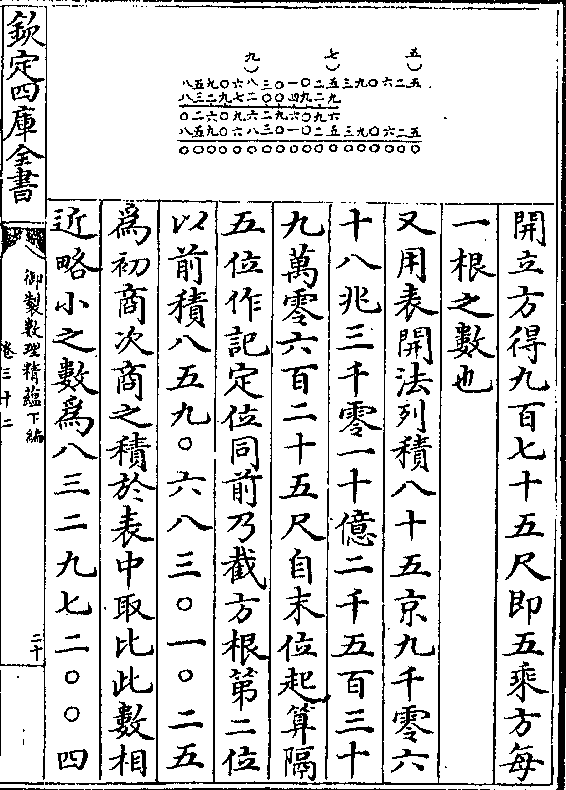 九) 七) 五)
八五九〇六八三〇一〇二五三九〇六二五
八三二九七二〇〇四九二九
〇二六〇九六二九六〇九六
八五九〇六八三〇一〇二五三九〇六二五
〇〇〇〇〇〇〇〇〇〇〇〇〇〇〇〇〇〇
開立方得九百七十五尺即五乘方每
一根之數也
又用表開法列積八十五京九千零六
十八兆三千零一十億二千五百三十
九萬零六百二十五尺自末位起算隔
五位作記定位同前乃截方根第二位
以前積八五九〇六八三〇一〇二五
爲初商次商之積於表中取比此數相
近略小之數爲八三二九七二〇〇四
欽定四庫全書
御製数理精藴下編
卷三十二
二十